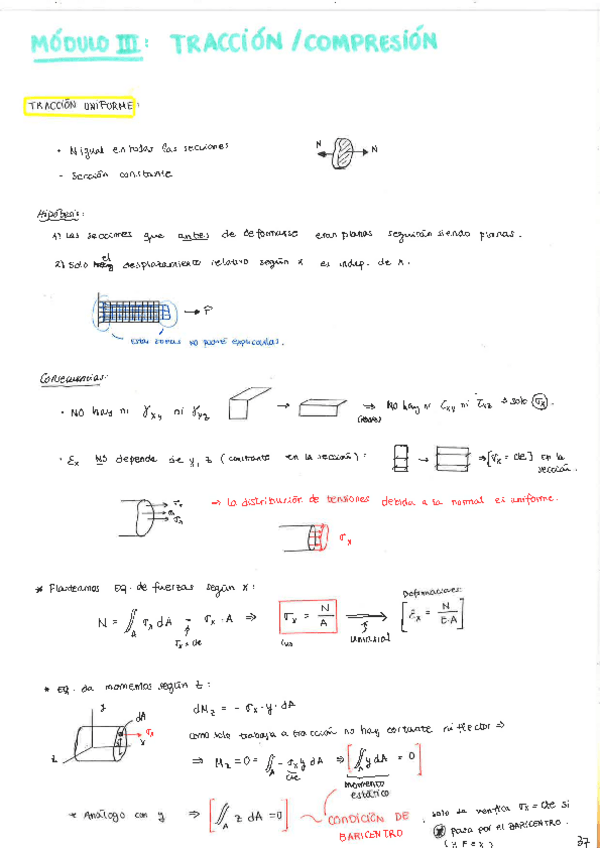 MÓDULO III: TRACCIÓN / COMPRESIÓN
TRACCIÓN UNIFORME:
· N igual en todas las secciones
N N
- Sección constante
Hipótesis:
1) Las secciones que antes de deformarse eran planas seguirán siendo planas.
2) Solo el desplazamiento relativo según x es indep. de x.
P
Estas zonas no puedo explicarlas.
Consecuencias:
· NO hay ni γxy ni γxz → ⇒ NO hay ni τxy ni τxz → solo σx.
· εx NO depende de y, z (constante en la sección): → ⇒ [σx = cte] en la sección.
σx
σx
→ la distribución de tensiones debida a la normal es uniforme.
σx
* Planteamos Eq. de fuerzas según x:
Deformaciones:
N = ∬A σx dA = σx · A ⇒ σx = N/A → [εx = N/E·A]
σx = cte
uniaxial
* Eq. da momentos según z:
y dA σx x z
dMz = - σx · y · dA
como solo trabaja a tracción no hay cortante ni flector ⇒
⇒ Mz = 0 = ∬A - σx y dA ⇒ [∬A y dA = 0]
cte
momento estático
* Análogo con y ⇒ [∬A z dA = 0]
CONDICIÓN DE BARICENTRO
solo se verifica σx = cte si
N pasa por el BARICENTRO.
37